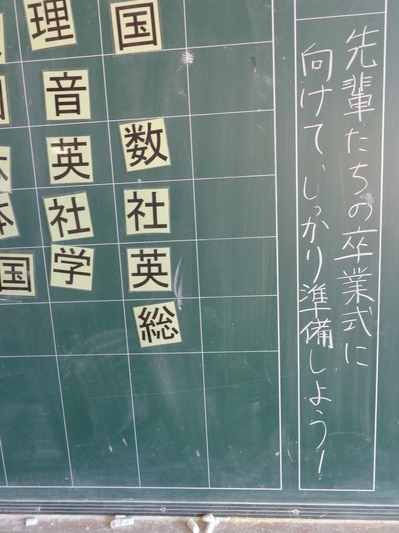 先輩たちの卒業式に
向けて、しっかり準備しよう！
国
数
社
英
総
理
音
英
社
学
体
国